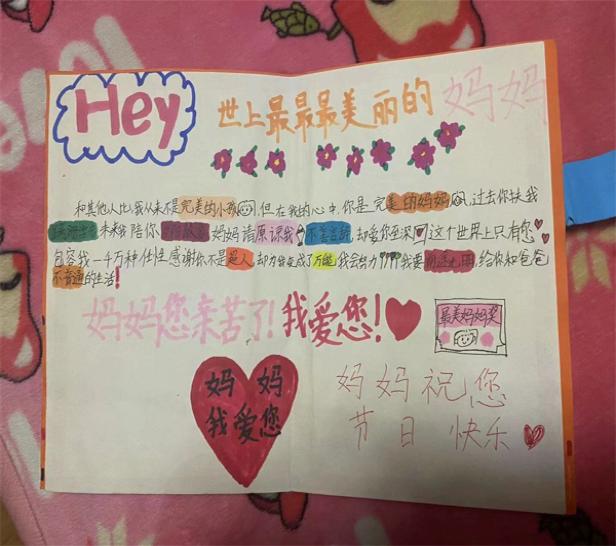 Hey
世上最最最美丽的妈妈
和其他人比我从未不是完美的小孩 但在我的心中,你是完美的妈妈 过去你扶我
未来我陪你 妈妈请原谅我 不善言辞,却爱您至深 这个世界上只有您
包容我一千万种任性感谢你不是超人 却为我变成了万能 我会努力 我要 给你和爸爸
不普通的生活!
妈妈您亲苦了!我爱您!
最美妈妈奖
妈妈
我爱您
妈妈祝您
节日快乐